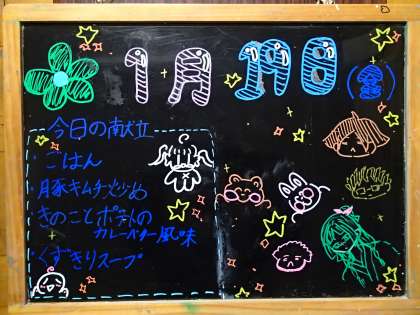 1月19日(金)
今日の献立
・ごはん
・豚キムチ炒め
・きのことポテトの
カレーバター風味
・くずきりスープ